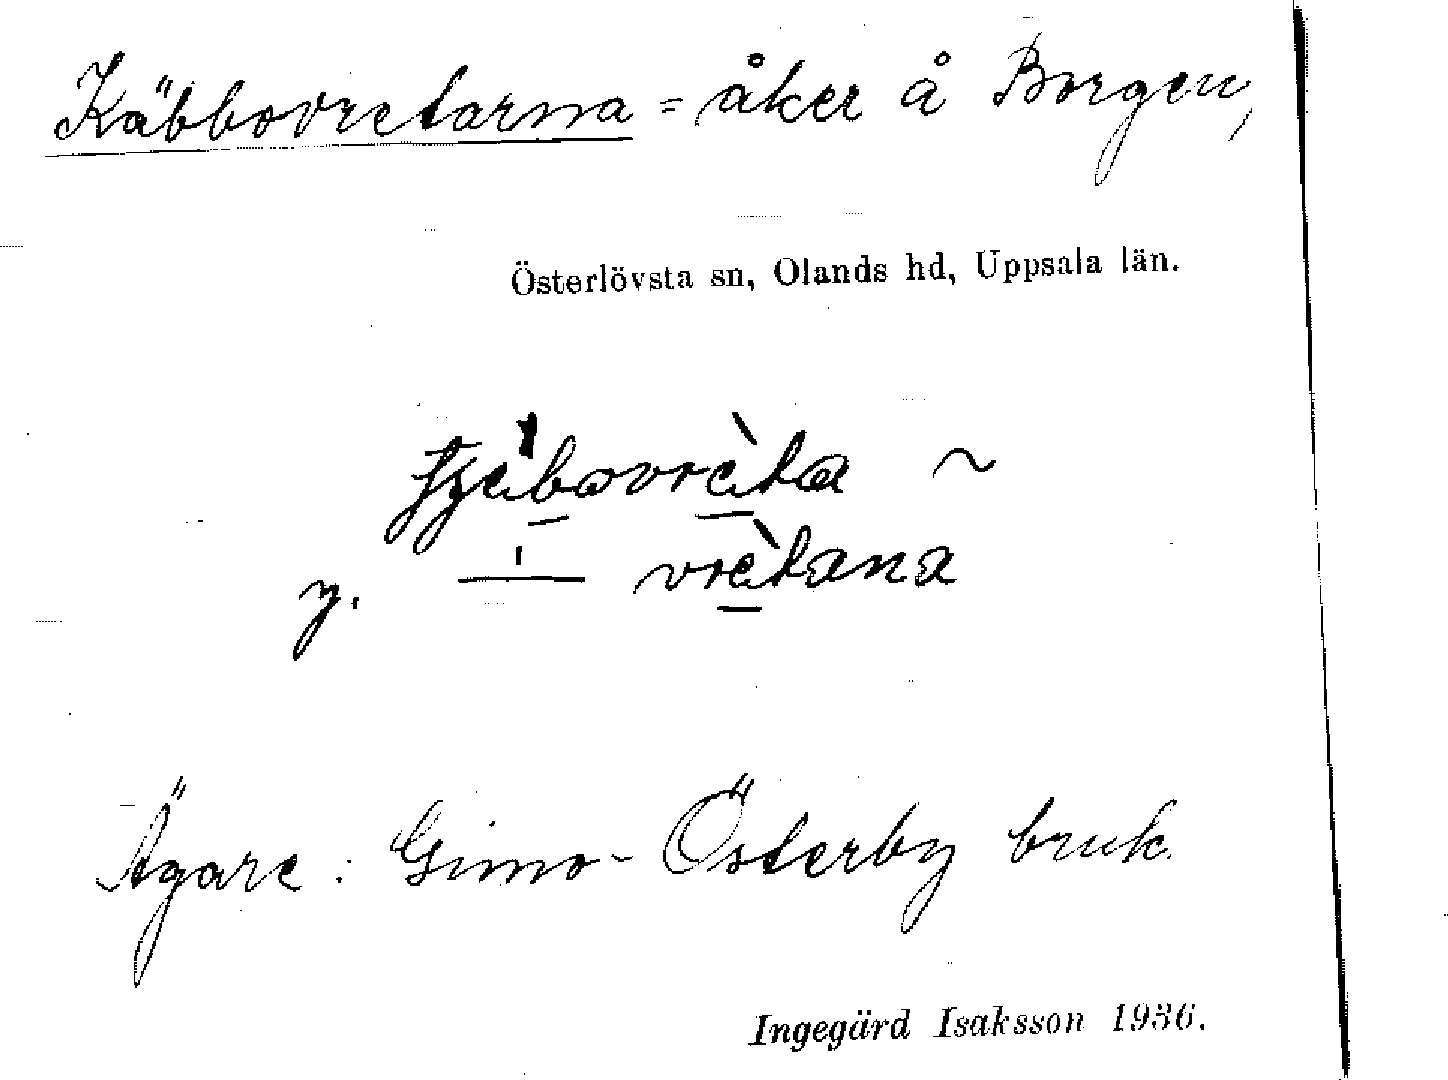 Käbbovretarna = åker å Borgen,
Österlövsta sn, Olands hd, Uppsala län.
vrètana
y.
Ägare: Gimo-Österby bruk.
Ingegärd Isaksson 1936.